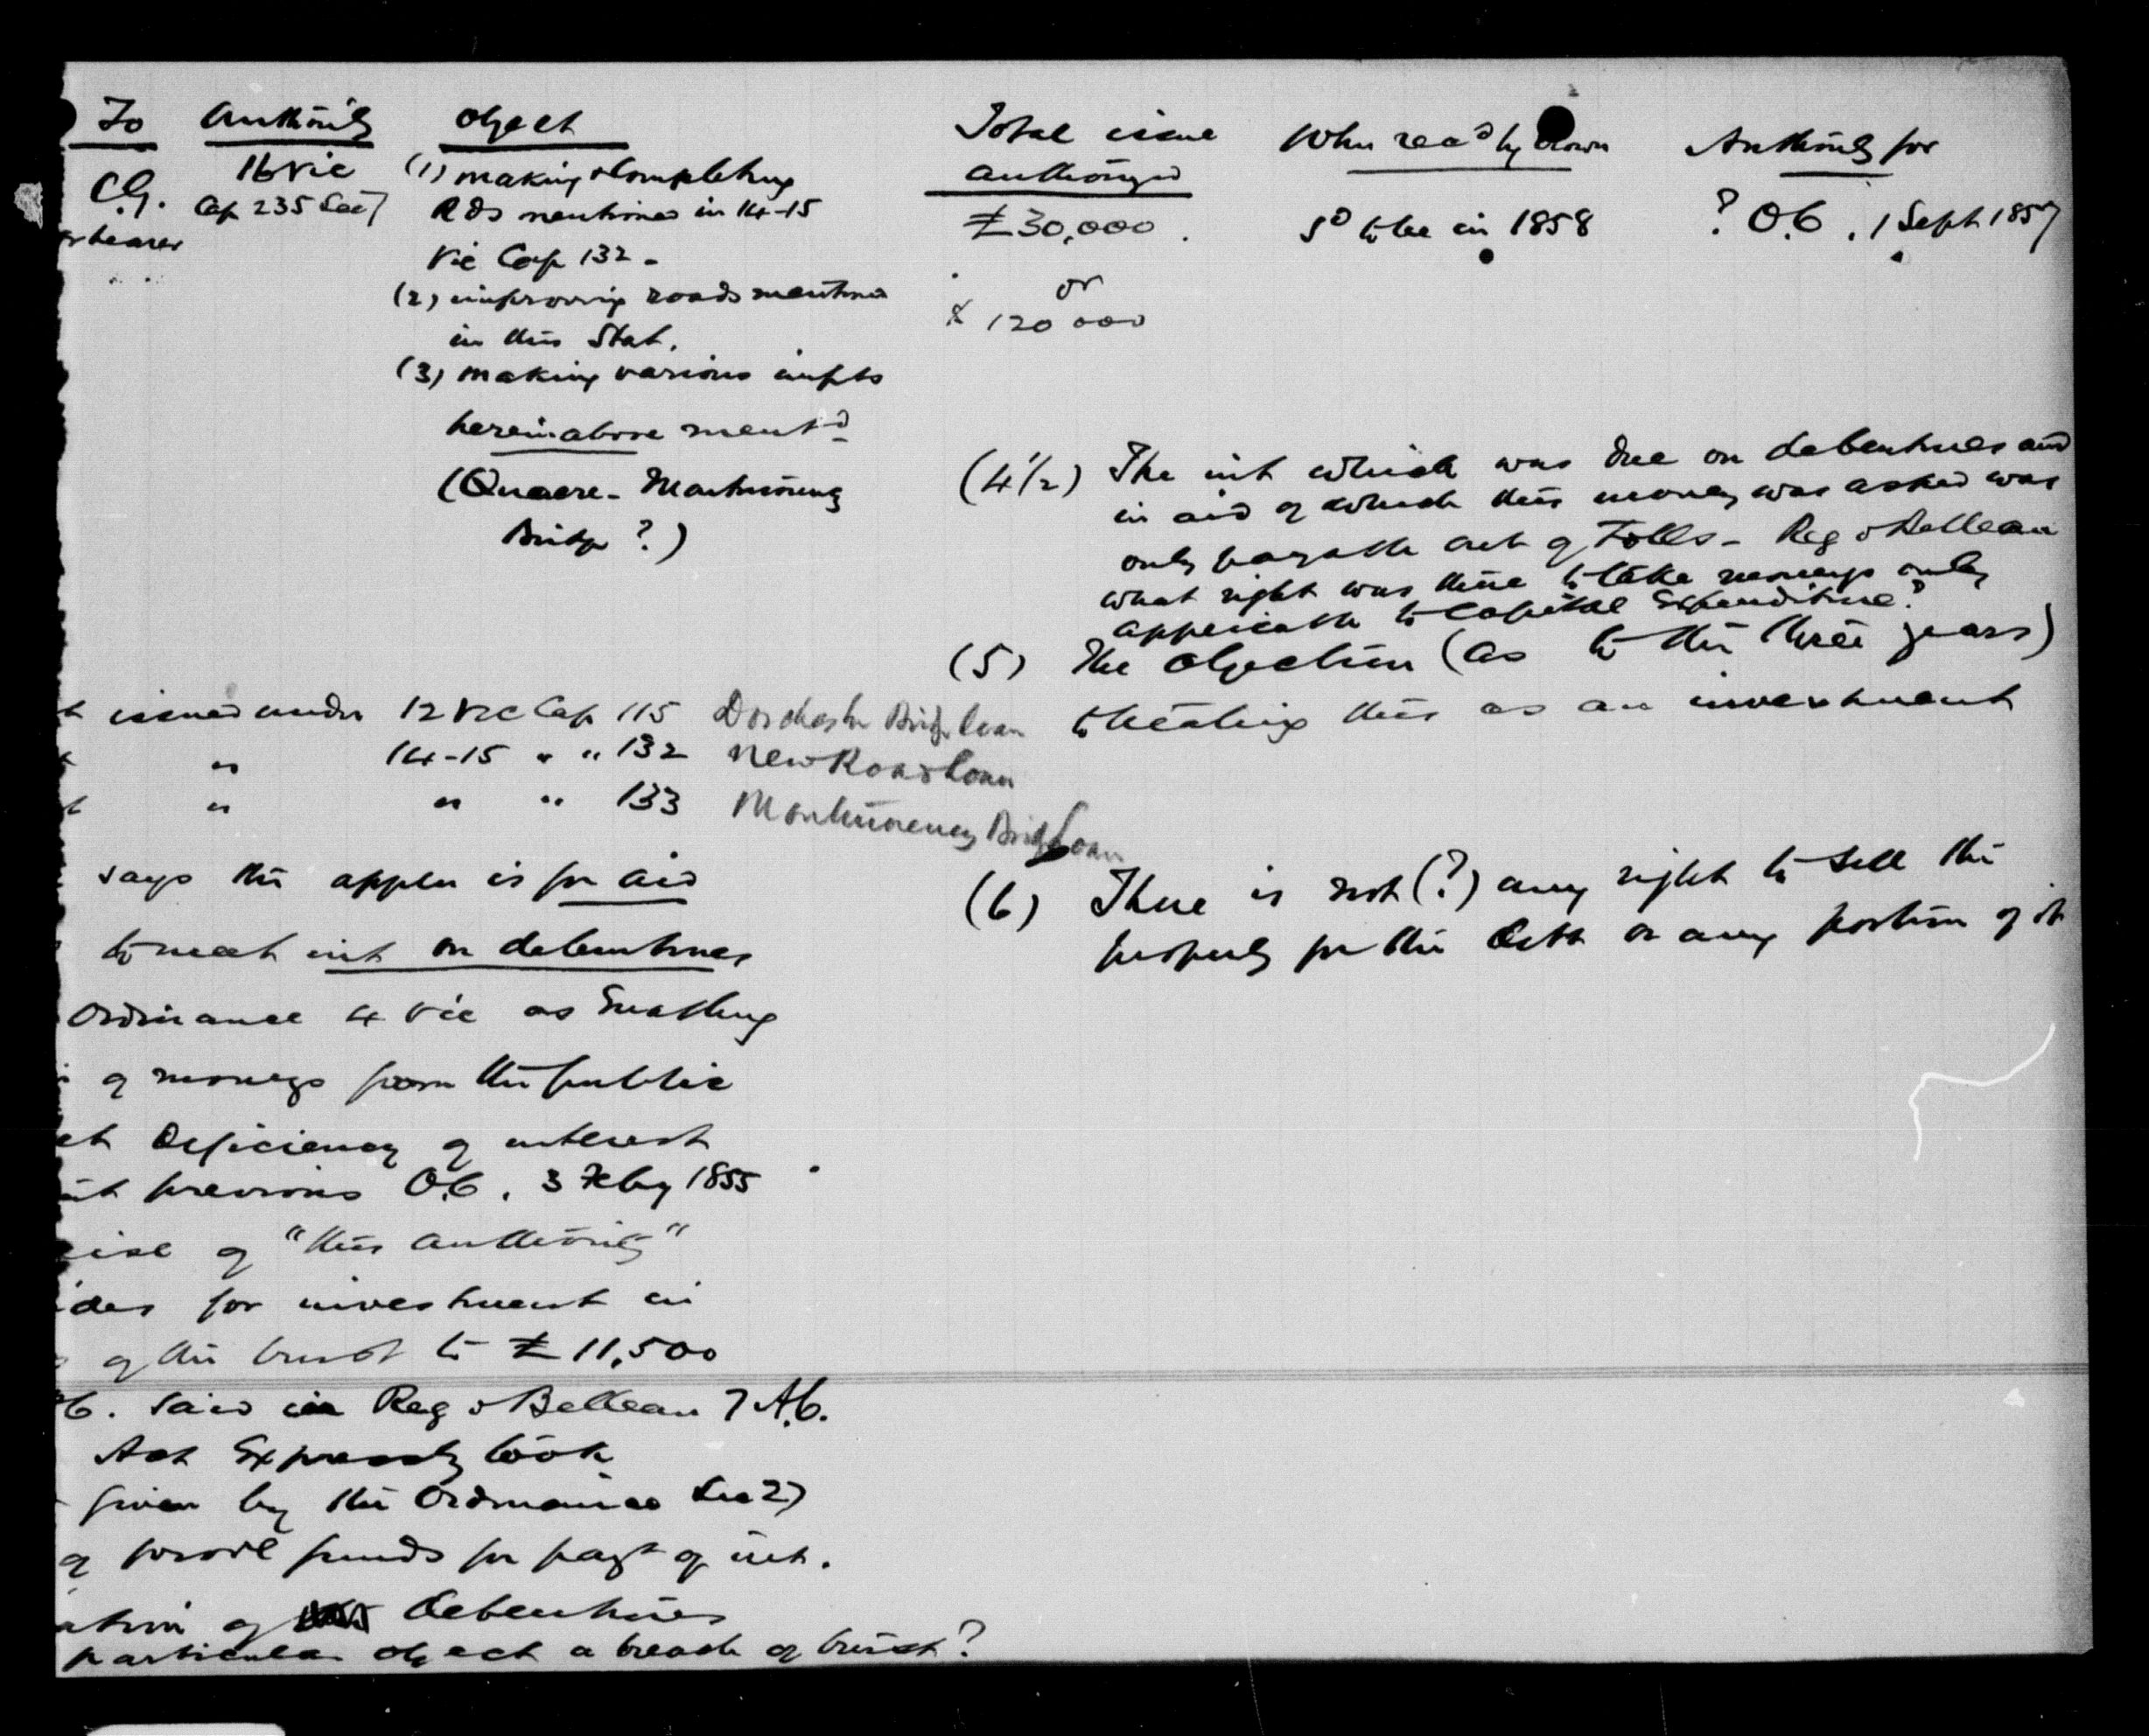 To Authority Object
C.G. 16 Vic (1) making & completing
or bearer Cap 235 Sec 7 Rds mentioned in 14-15
Vic Cap 132 -
(2) improving roads mentioned
in this Stat.
(3) making various impts
hereinabove mentd
(Quaere - Montmorency
Bridge ?)
Total issue When recd by Crown Authority for
authorized
£30,000. sd to be in 1858 ? O.C. 1 Sept 1857
or
$ 120 000
(4 1/2) The int which was due on debentures and
in aid of which this money was asked was
only payable out of Tolls - Reg v Belleau
what right was there to take moneys only
applicable to Capital Expenditure?
(5) The objection (as to the three years)
to treating this as an investment
issued under 12 Vic Cap 115 Dorchester Bridge loan
" 14-15 " " 132 New Road Loan
" " " 133 Montmorency Bridge Loan
says the appln is for aid
to meet int on debentures
Ordinance 4 Vic as enabling
of moneys from the public
deficiency of interest
previous O.C. 3 Feby 1855
of "this authority"
for investment in
of the trust to £ 11,500
(6) There is not (?) any right to sell the
property for the debt or any portion of it
said in Reg v Belleau 7 A.C.
Act Expressly took
given by the Ordinance Sec 27
of provl funds for payt of int.
of debentures
particular object a breach of trust?